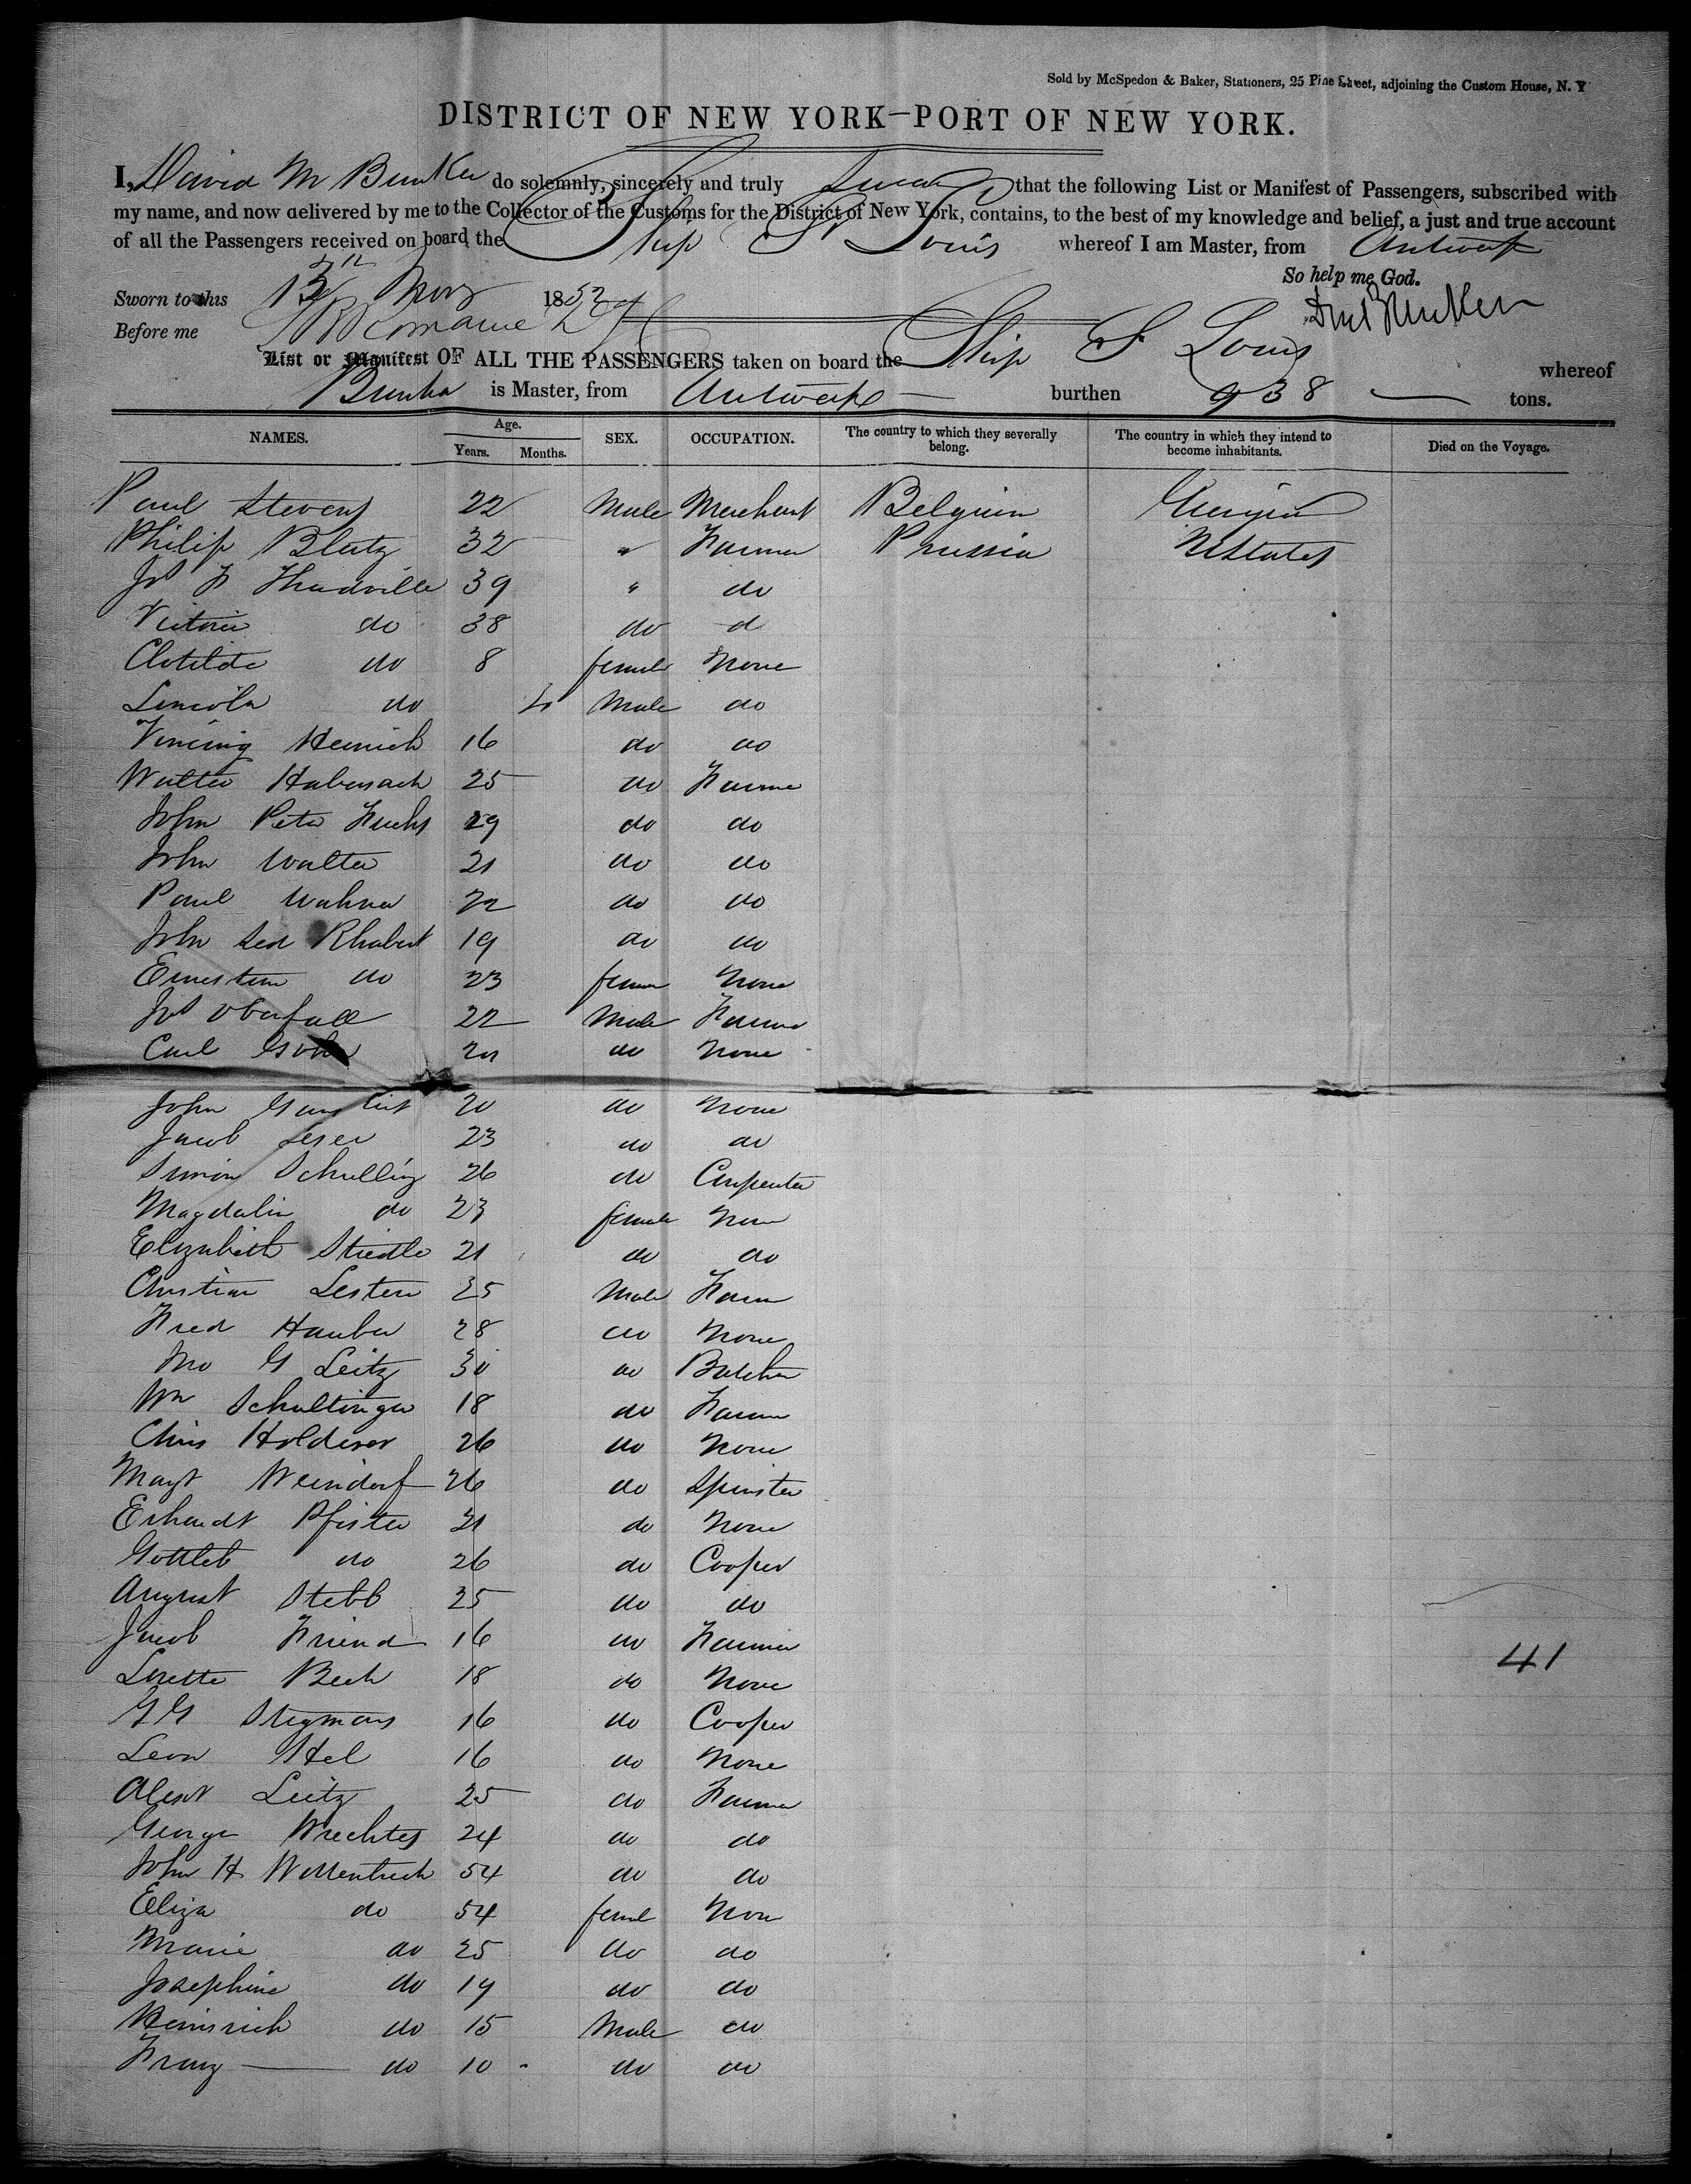 Sold by McSpedon & Baker, Stationers, 25 Pine Street, adjoining the Custom House, N. Y
DISTRICT OF NEW YORK—PORT OF NEW YORK.
I, David M Bunker do solemnly, sincerely and truly Swear that the following List or Manifest of Passengers, subscribed with
my name, and now delivered by me to the Collector of the Customs for the District of New York, contains, to the best of my knowledge and belief, a just and true account
of all the Passengers received on board the Ship St Louis whereof I am Master, from Antwerp
So help me God.
Sworn to this 13th Nov 1852
Before me
List or Manifest OF ALL THE PASSENGERS taken on board the Ship St Louis whereof
Bunker is Master, from Antwerp burthen 938 tons.
NAMES. Age. Years. Months. SEX. OCCUPATION. The country to which they severally belong. The country in which they intend to become inhabitants. Died on the Voyage.
Paul Stevens 22 Male Merchant Belgium
Philip Blutz 32 " Farmer Prussia UStates
39 " do
Victoria do 38 do d
Clotilde do 8 female None
do Male do
Heinrich 16 do do
Walter Habersack 25 do Farmer
John Peter Fuchs 29 do do
John Walter 21 do do
Paul 22 do do
John Rhabert 19 do do
Ernestine do 23 female None
Oberfall 22 Male Farmer
Carl do None
John 20 do None
Jacob Leser 23 do do
Simon Schulling 26 do Carpenter
Magdalin do 23 female None
Elizabeth Stiedle 21 do do
Christian Lestern 25 Male Farm
Fred Hauber 28 do None
Jno G Leitz 30 do Butcher
Wm Schultinger 18 do Farmer
Chris Holderer 26 do None
Margt Weindorf 26 do Spinster
Erhardt Pfister 21 do None
Gottleb do 26 do Cooper
August Stebb 25 do do
Jacob Friend 16 do Farmer
41
Lorette Beck 18 do None
G G Stegmans 16 do Cooper
Leon Hel 16 do None
Alext Leitz 25 do Farmer
George Wrechter 24 do do
John H 54 do do
Eliza do 54 femal Non
Marie do 25 do do
Josephine do 19 do do
Heinrich do 15 Male do
Franz do 10 do do